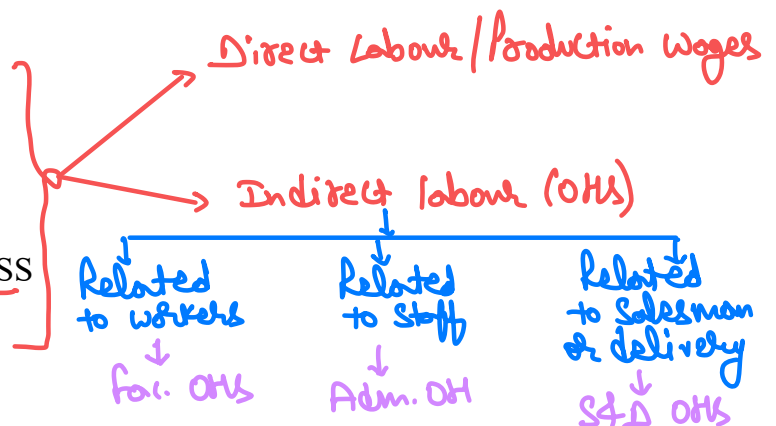 Direct Labour/Production Wages
Indirect Labour (OHS)
ss
Related
to workers
Related
to Staff
Related
to Salesman
or delivery
Fac. OHS
Adm. OH
S&D OHS